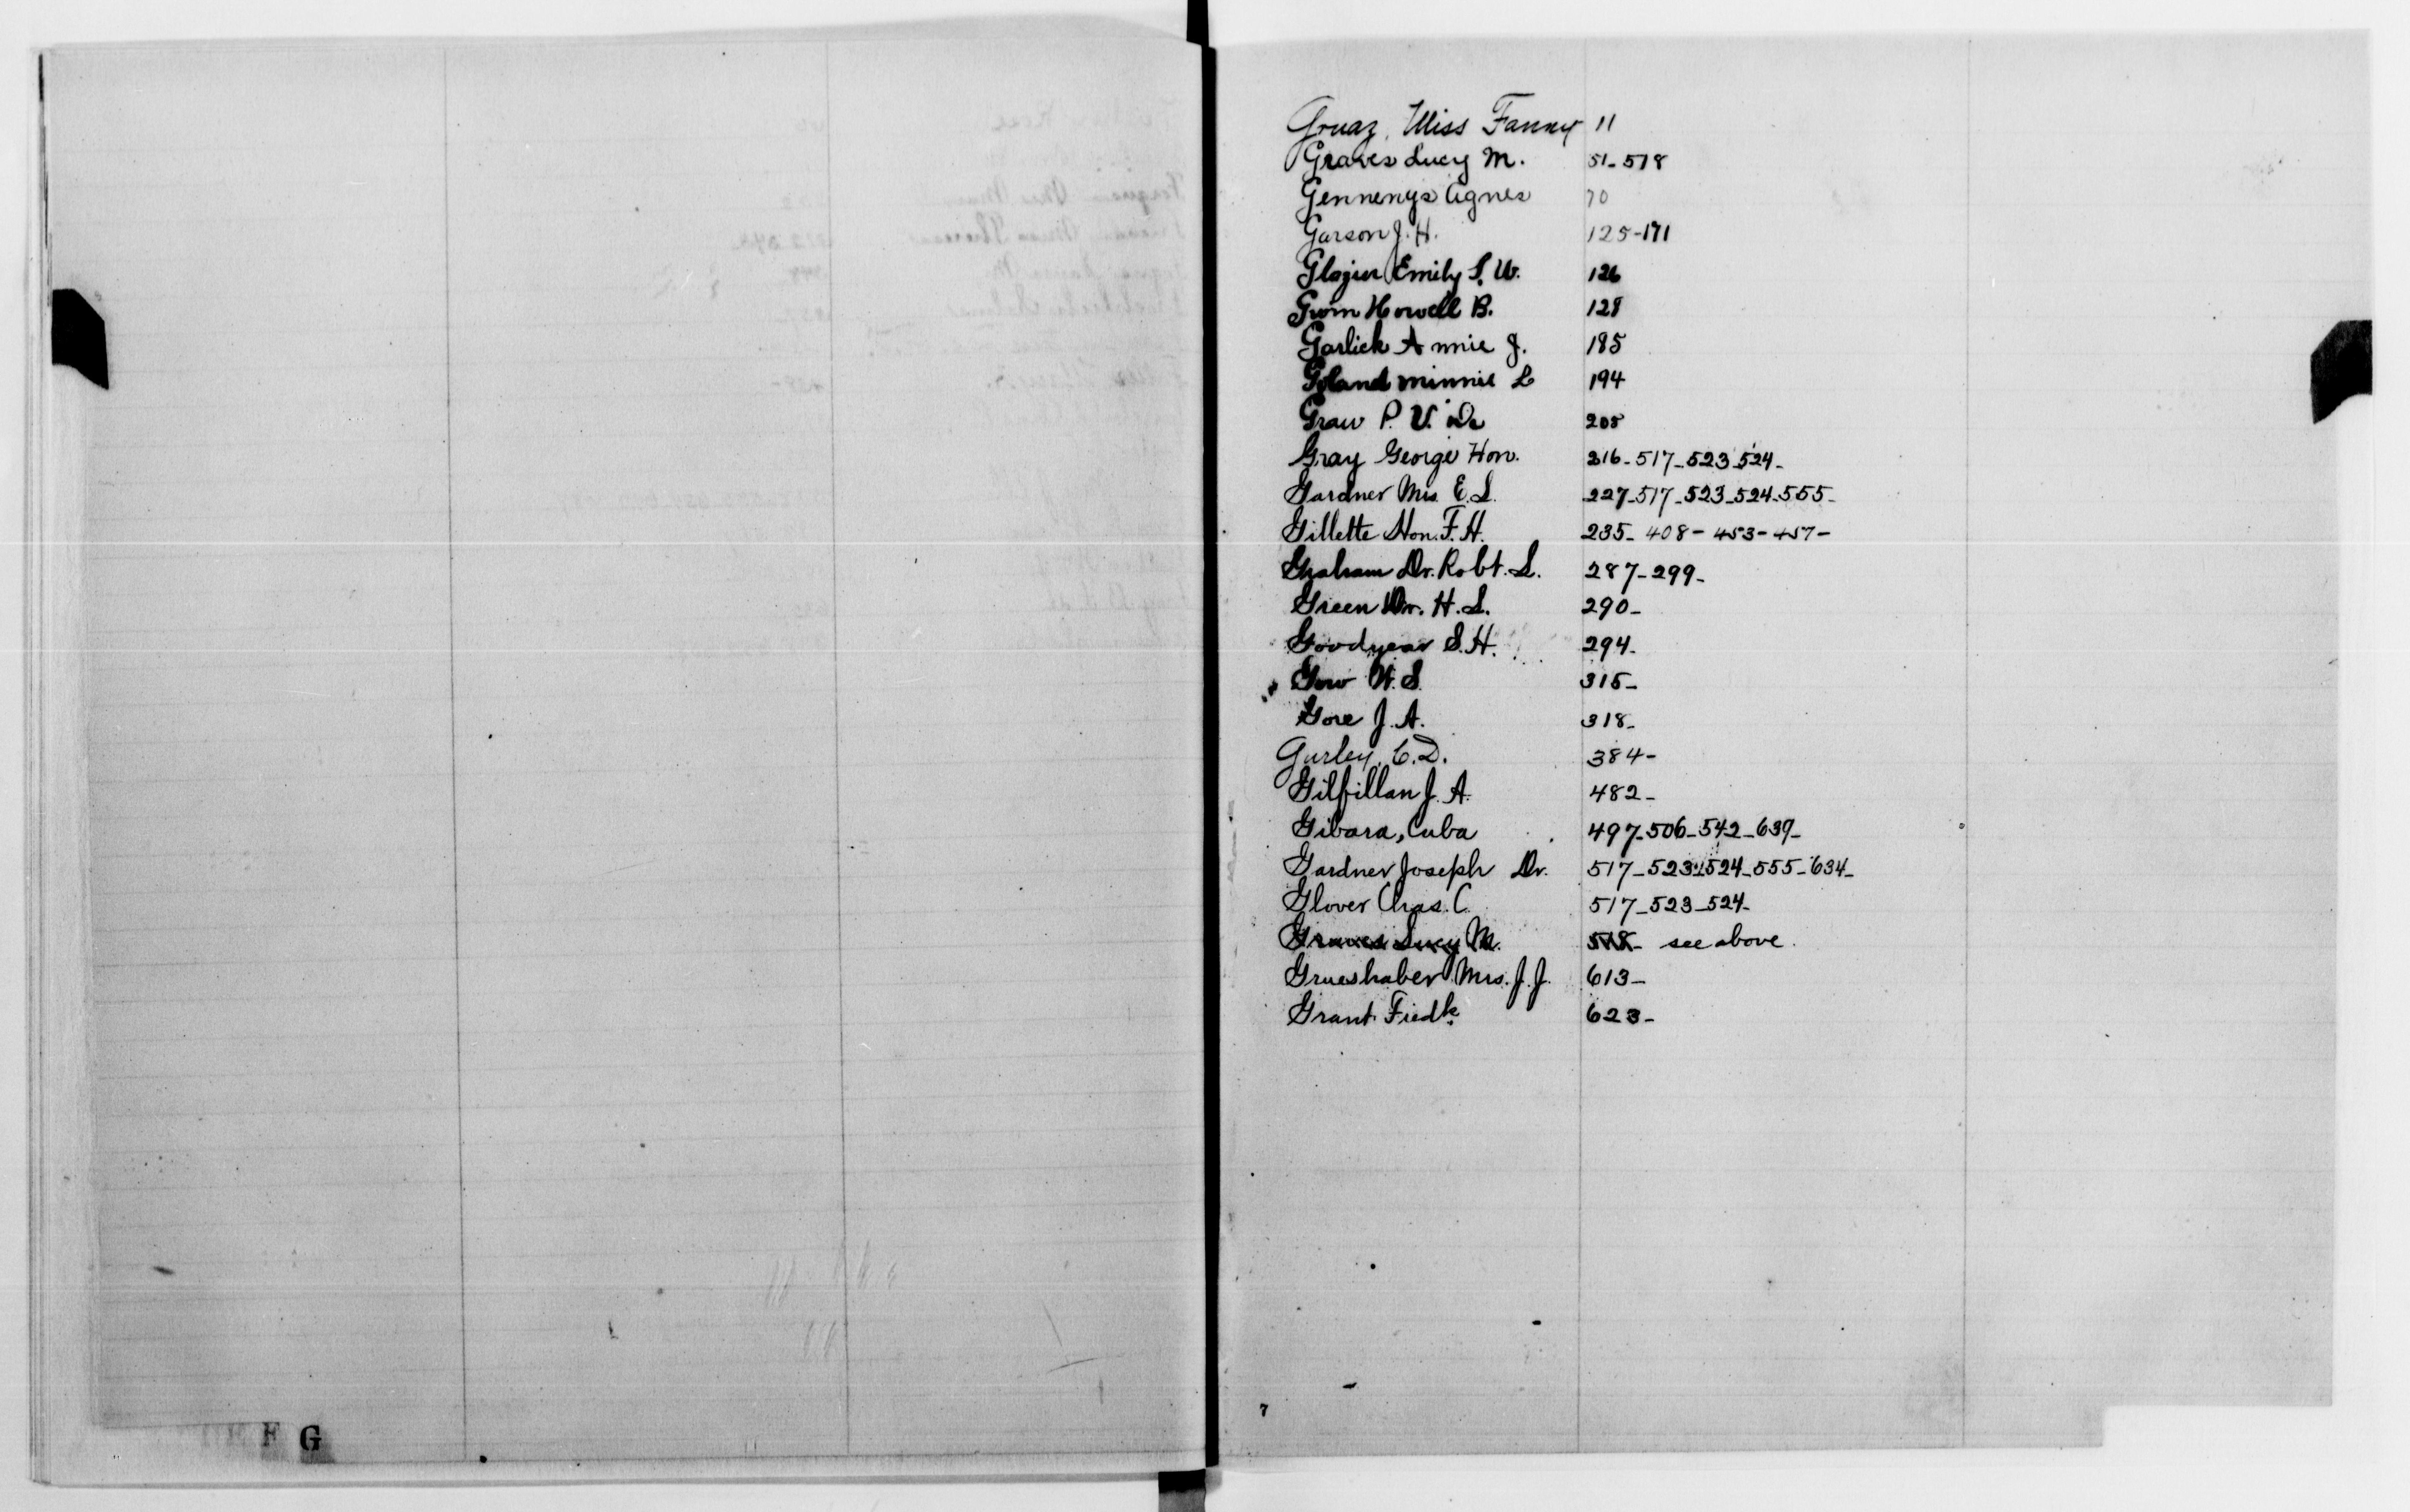 F G
Gruaz, Miss Fanny 11
Graves Lucy M. 51-578
Gennenys Agnes 70
Garson J. H. 125-171
Emily S. W. 126
Howell B. 128
Garlick Annie J. 185
Goland Minnie L 194
Graw P. V. De 205
Gray George Hon. 216-517-523-524-
Gardner Mrs. E. L. 227-517-523-524-555-
Gillette Hon. F. H. 235-408-453-457-
Graham Dr. Robt. L. 287-299-
Green Dr. H. L. 290-
Goodyear S. H. 294-
Gow W. S. 315-
Gore J. A. 318-
Gurley, C. D. 384-
Gilfillan J. A. 482-
Gibara, Cuba 497-506-542-639-
Gardner Joseph Dr. 517-523-524-555-634-
Glover Chas. C. 517-523-524-
Graves Lucy M. 578- see above.
Grueshaber Mrs. J. J. 613-
Grant Fredk. 623-
7